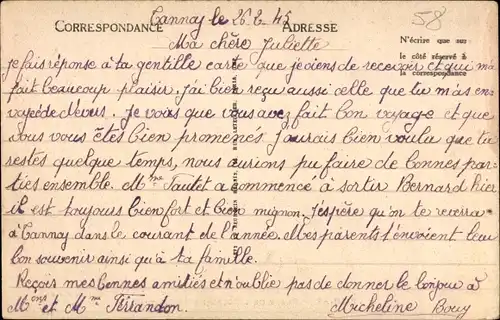 Tannay le 26.2.45
58
CORRESPONDANCE
ADRESSE
N'écrire que sur
le côté réservé à
la correspondance
Ma chère Juliette
je fais réponse à ta gentille carte que je viens de recevoir et qui m'a
fait beaucoup plaisir. j'ai bien reçu aussi celle que tu m'as en
voyée de Nevers. je vois que vous avez fait bon voyage et que
vous vous êtes bien promenés. J'aurais bien voulu que tu
restes quelque temps, nous aurions pu faire de bonnes par
ties ensemble. Mme Tautet a commencé à sortir Bernard hier
il est toujours bien fort et bien mignon. J'espère qu'on te reverra
à Tannay dans le courant de l'année. Mes parents t'envoient leur
bon souvenir ainsi qu'à ta famille.
Reçois mes bonnes amitiés et n'oublie pas de donner le bonjour à
Mons et Mme Ferrandon. Micheline Bouy